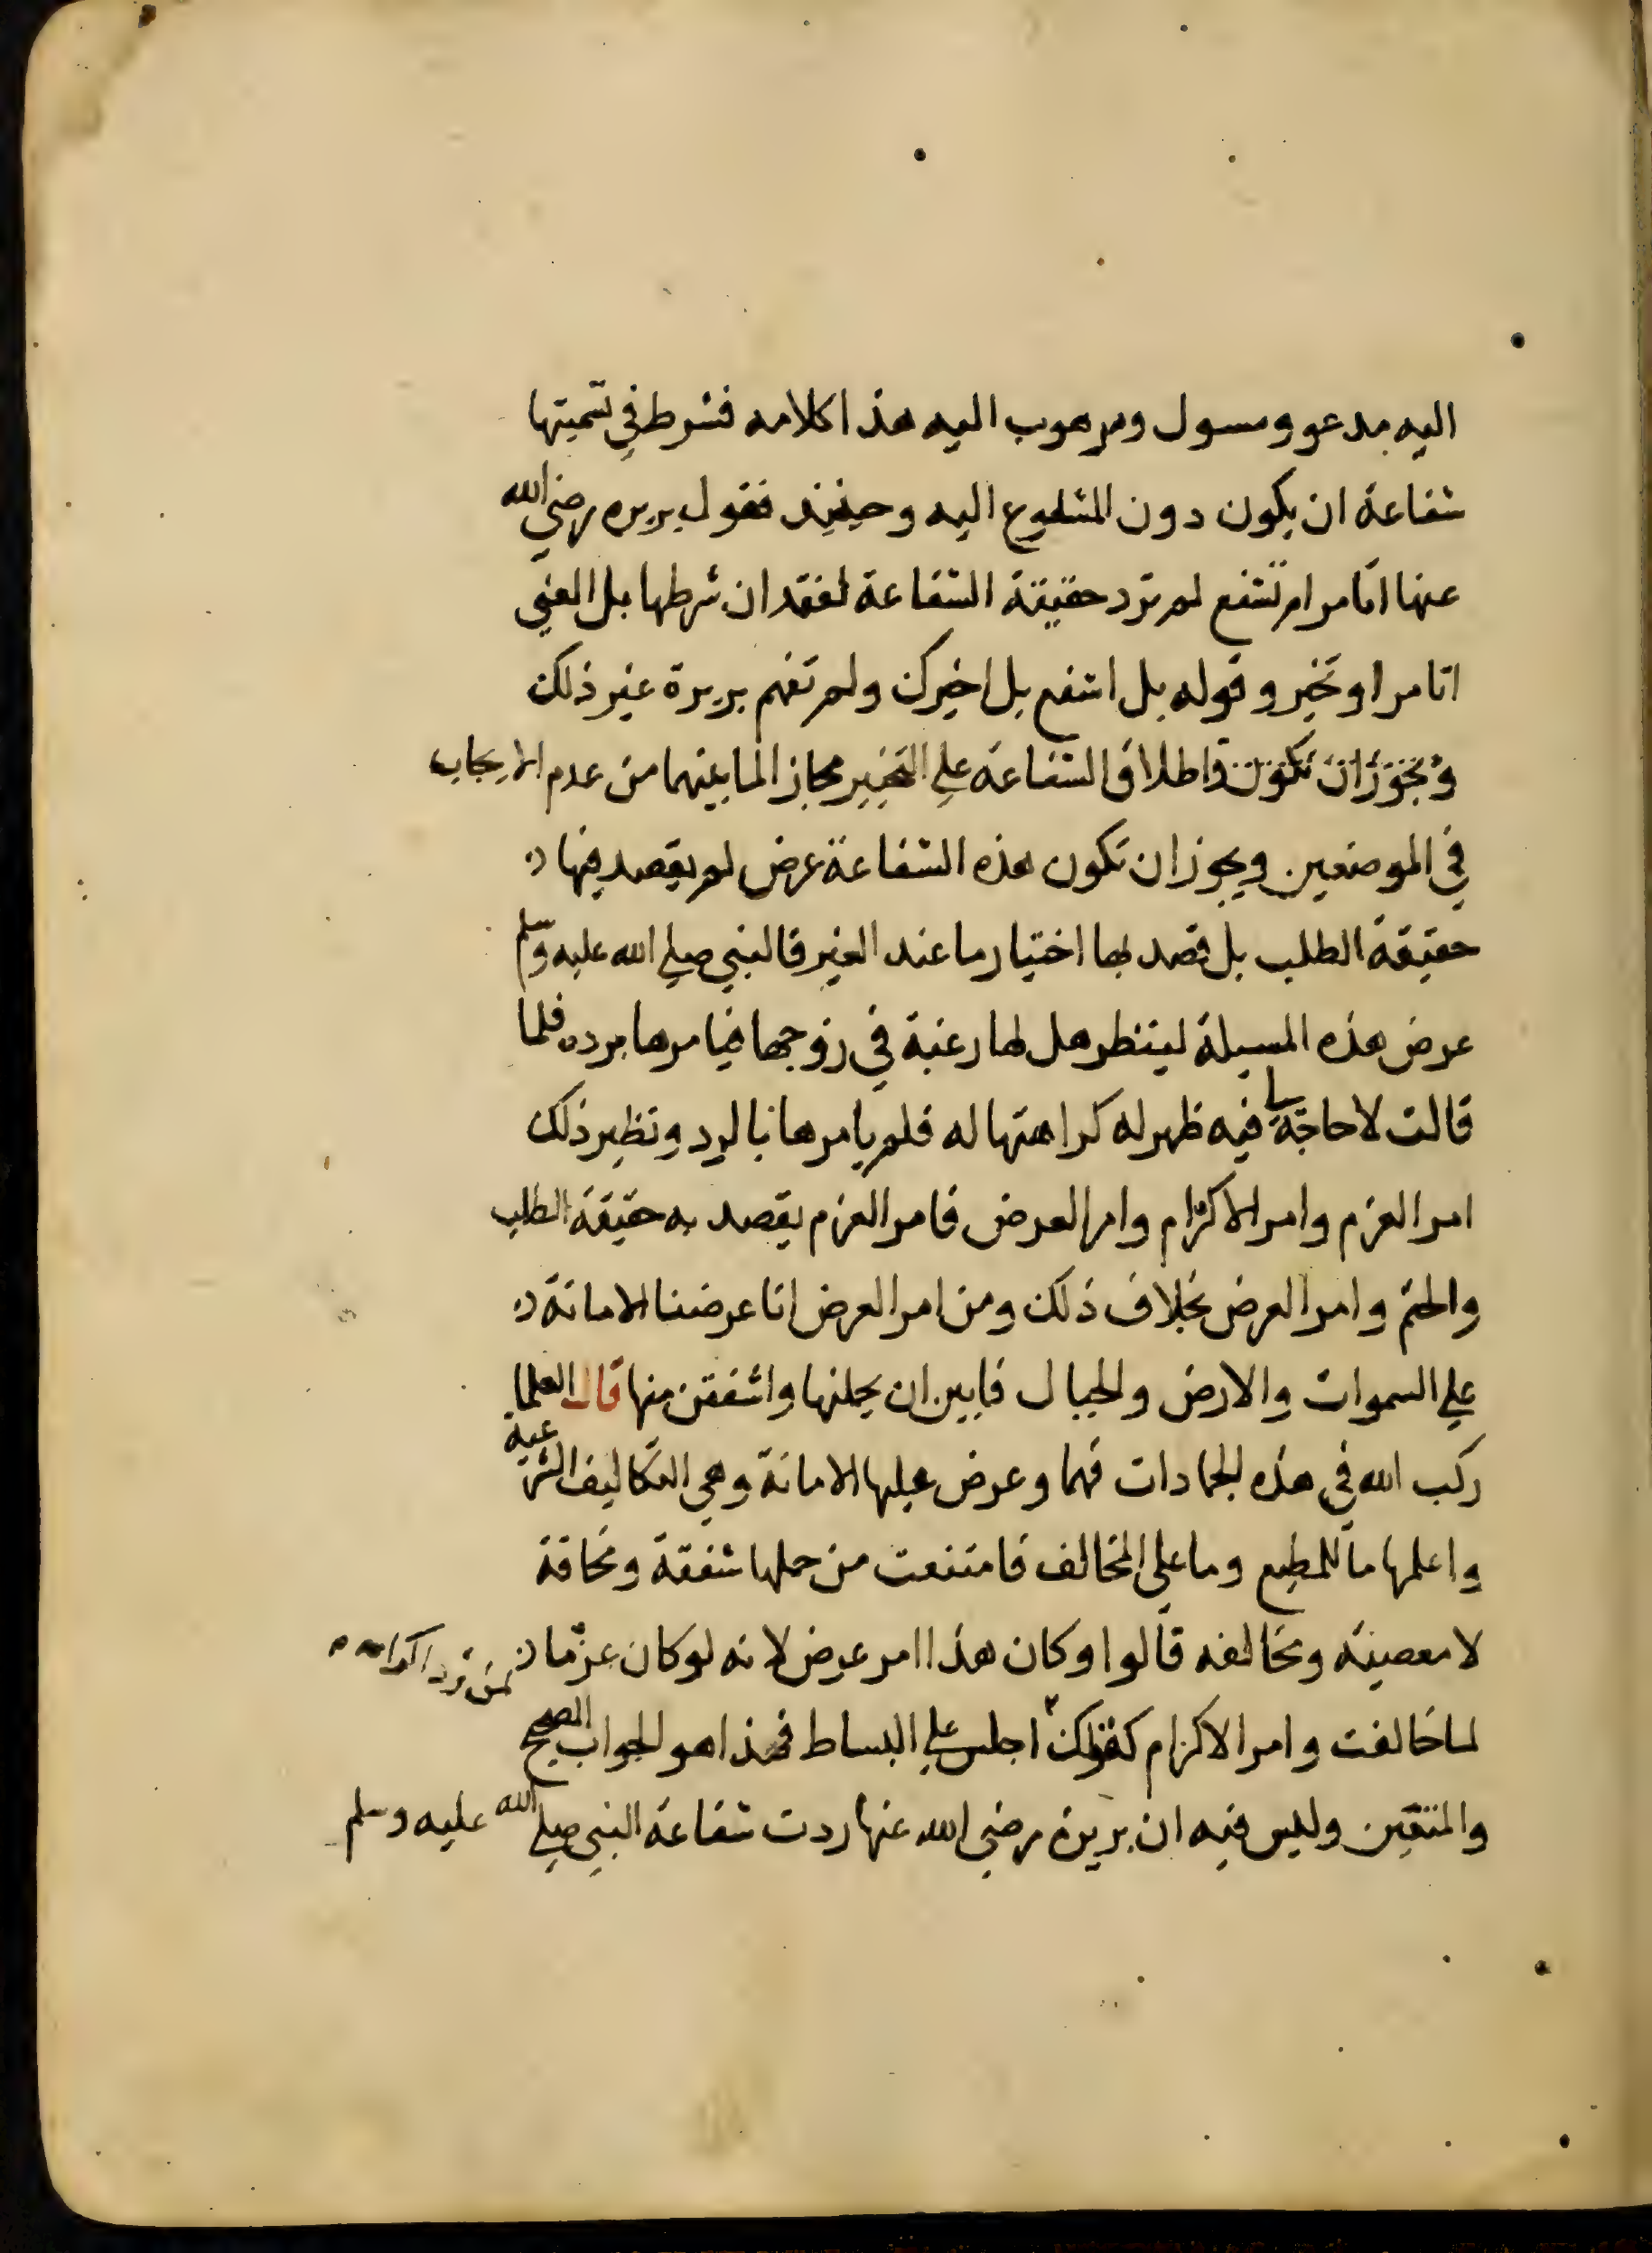 اليه مدعو ومسول ومرهوب اليه هذا كلامه فشرط في تسميتها
شفاعة ان يكون دون المشفوع اليه وحينيذ فقول بريره رضي الله
عنها اتامر ام تشفع لم ترد حقيقة الشفاعة لفقدان شرطها بل المعني
اتامر او تخير وقوله بل اشفع بل اخيرك ولم تفهم بريرة غير ذلك
ويجوز ان تكون واطلاق الشفاعة علي التخيير مجاز لما بينهما من عدم الايجاب
في الموضعين ويجوز ان تكون هذه الشفاعة عرض لم يقصد فيها
حقيقة الطلب بل قصد بها اختيار ما عند الغير فالنبي صلي الله عليه وسلم
عرض هذه المسيلة لينظر هل لها رغبة في زوجها فيامرها برده فلما
قالت لا حاجة لي فيه ظهر له كراهتها له فلم يامرها بالرد ونظير ذلك
امر العزم وامر الاكرام وامر العرض فامر العزم يقصد به حقيقة الطلب
والحتم وامر العرض بخلاف ذلك ومن امر العرض انا عرضنا الامانة
علي السموات والارض والجبال فابين ان يحملنها واشفقن منها قال العلما
ركب الله في هذه الجمادات فهما وعرض عليها الامانة وهي التكاليف الشرعية
واعلمها ما للمطيع وما على المخالف فامتنعت من حملها شفقة ومخافة
لا معصيته ومخالفه قالوا وكان هذا امر عرض لانه لو كان عزما
لما خالفت وامر الاكرام كقولك لمن تريد اكرامه اجلس علي البساط فهذا هو الجواب الصحيح
والمتعين وليس فيه ان بريرة رضي الله عنها ردت شفاعة النبي صلي الله عليه وسلم